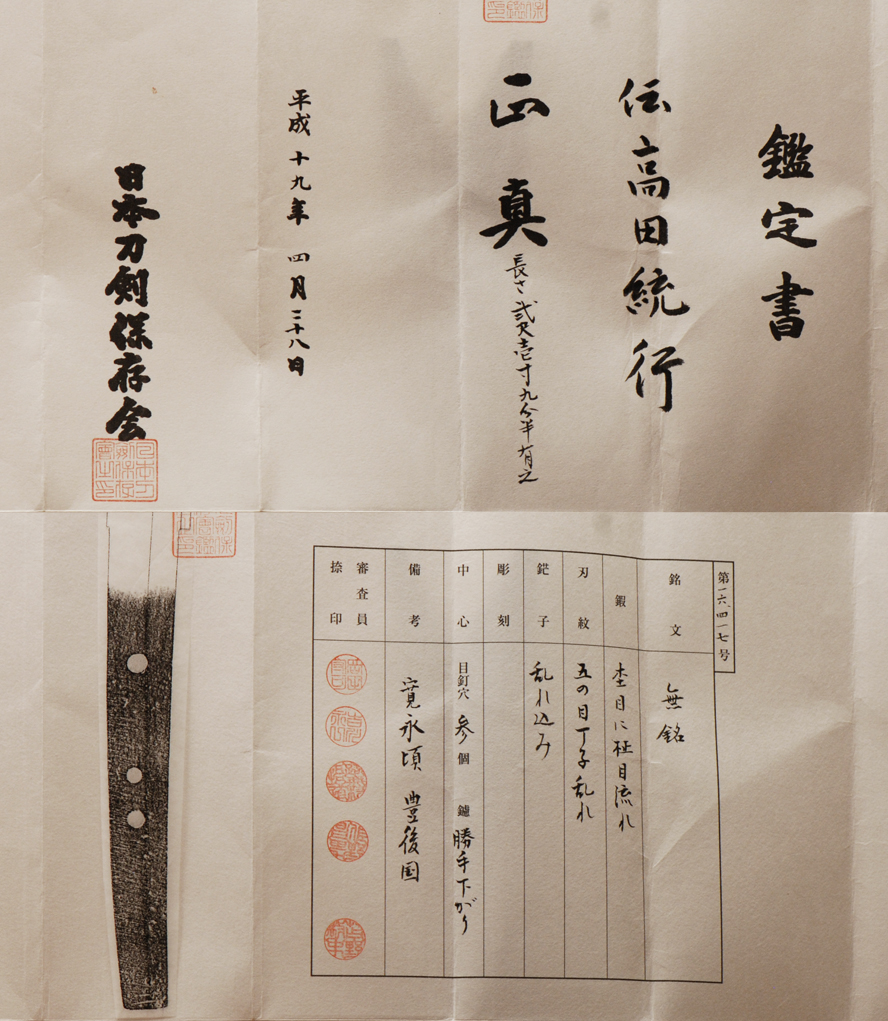 鑑定書
伝高田統行
正真
長さ弐尺壱寸九分半有之
平成十九年四月二十八日
日本刀剣保存会
第一六、四一七号
銘文
無銘
鍜
杢目に柾目流れ
刃紋
五の目丁子乱れ
鋩子
乱れ込み
彫刻
中心
目釘穴 参個 鑢 勝手下がり
備考
寛永頃 豊後国
審査員
捺印